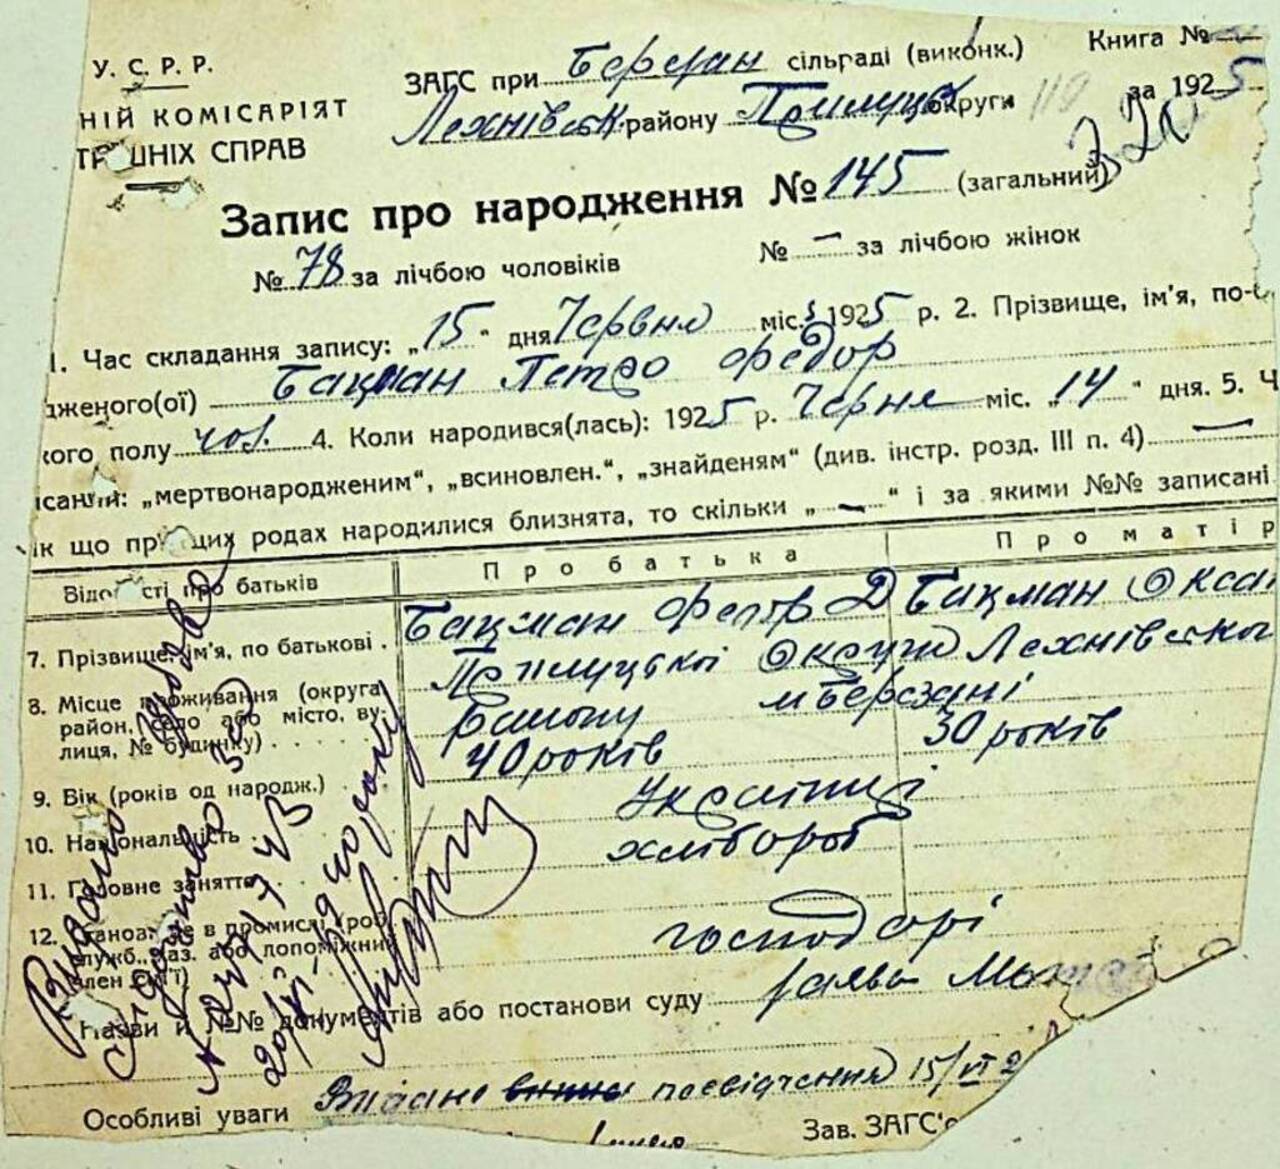 У. С. Р. Р.
НІЙ КОМІСАРІЯТ
ШНІХ СПРАВ
ЗАГС при Березан сільраді (виконк.)
Лехнівськ району Прилуцьк округи 110
Книга № —
за 1925
Запис про народження № 145 (загальний)
№ 78 за лічбою чоловіків
№ — за лічбою жінок
1. Час складання запису: „15“ дня Червня міс. 1925 р. 2. Прізвище, ім'я, по-б
дженого(ої) Бацман Петро Федор
кого полу чол. 4. Коли народився(лась): 1925 р. Черня міс. „14“ дня. 5. Ч
исаний: „мертвонародженим“, „всиновлен.“, „знайденям“ (див. інстр. розд. III п. 4) —
як що при цих родах народилися близнята, то скільки „—“ і за якими №№ записані
Відомості про батьків
Про батька
Про матір
7. Прізвище, ім'я, по батькові .
Бацман Федор Д
Бацман Окса
8. Місце проживання (округа
район, село або місто, ву-
лиця, № будинку)
Прилуцької Округи Лехнівсько
району м Березані
9. Вік (років од народж.)
40 років
30 років
10. Національність
Українці
11. Головне заняття
хлібороб
12. Становище в промислі (роб.
служб., газ. або допоміжний
член сім'ї)
господарі
Назви й №№ документів або постанови суду
заява
Особливі уваги Видано посвідчення 15/VI 2
Зав. ЗАГС'о
Видано